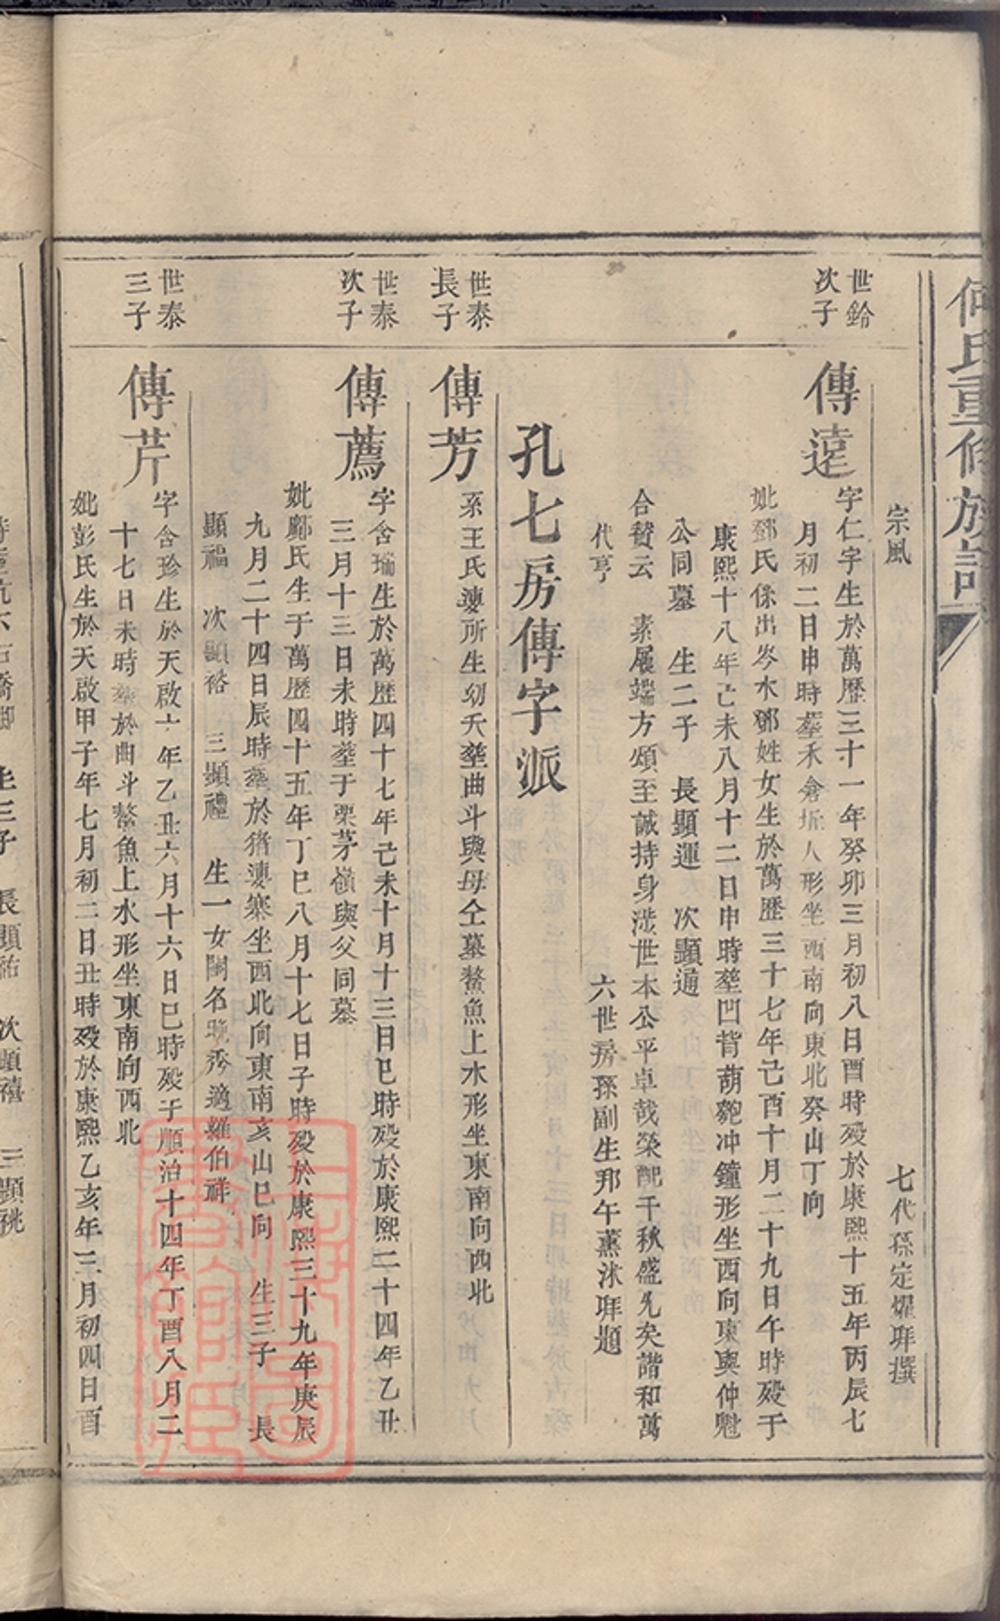 何氏重修族譜
宗風
七代孫定燿拜撰
世鈴
次子
傳遠
字仁字生於萬歷三十一年癸卯三月初八日酉時殁於康熙十五年丙辰七
月初二日申時塟禾倉坵人形坐西南向東北癸山丁向
妣鄧氏係出岑水鄧姓女生於萬歷三十七年己酉十月二十九日午時殁于
康熙十八年己未八月十二日申時塟凹背葫蘆冲鐘形坐西向東與仲魁
公同墓 生二子 長顯運 次顯通
合賛云 素履端方頌至誠持身涖世本公平卓哉榮配千秋盛允矣諧和萬
代亨
六世房孫副生邦午薰沐拜題
孔七房傳字派
世泰
長子
傳芳
系王氏婆所生幼夭塟曲斗與母仝墓鰲魚上水形坐東南向西北
世泰
次子
傳薦
字含瑞生於萬歷四十七年己未十月十三日巳時殁於康熙二十四年乙丑
三月十三日未時塟于栗茅嶺與父同墓
妣鄺氏生于萬歷四十五年丁巳八月十七日子時殁於康熙三十九年庚辰
九月二十四日辰時塟於猪婆寨坐西北向東南亥山巳向 生三子 長
顯福 次顯裕 三顯禮 生一女閨名聰秀適羅伯祥
世泰
三子
傳芹
字含珍生於天啟六年乙丑六月十六日巳時殁于順治十四年丁酉八月二
十七日未時塟於曲斗鰲魚上水形坐東南向西北
妣彭氏生於天啟甲子年七月初二日丑時殁於康熙乙亥年三月初四日酉
生三子 長顯祐 次顯禧 三顯祧